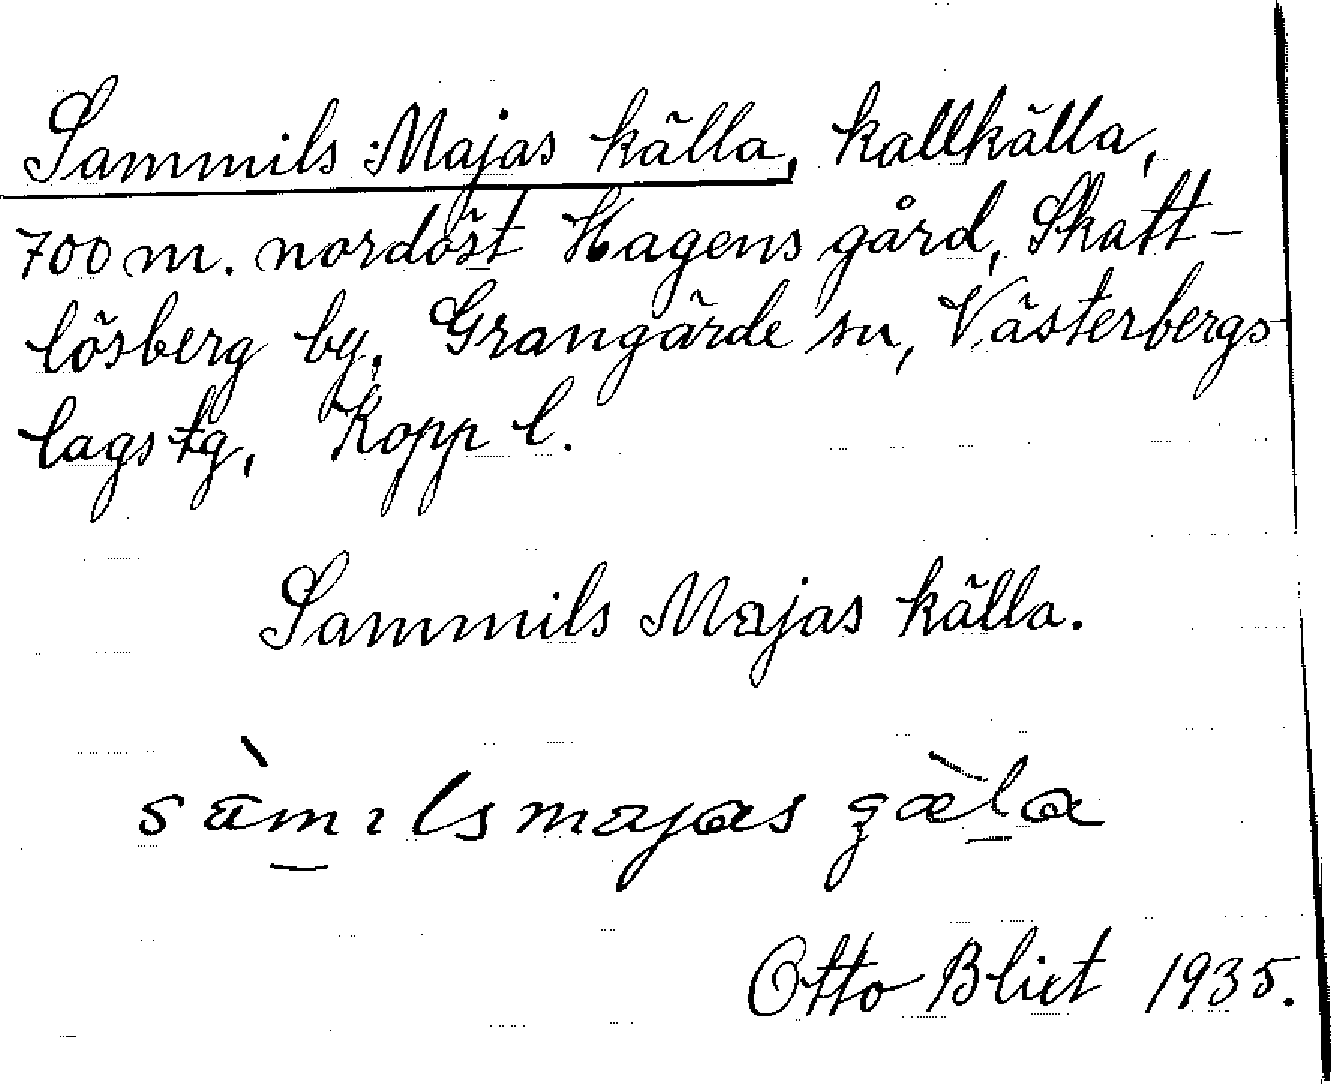 Sammils Majas källa, kallkälla,
700 m. nordöst Hagens gård, Skatt-
lösberg by, Grangärde sn, Västerbergs
lags tg, Kopp l.
Sammils Majas källa.
sàmɪls majas ʂæ̀la
Otto Blixt 1935.